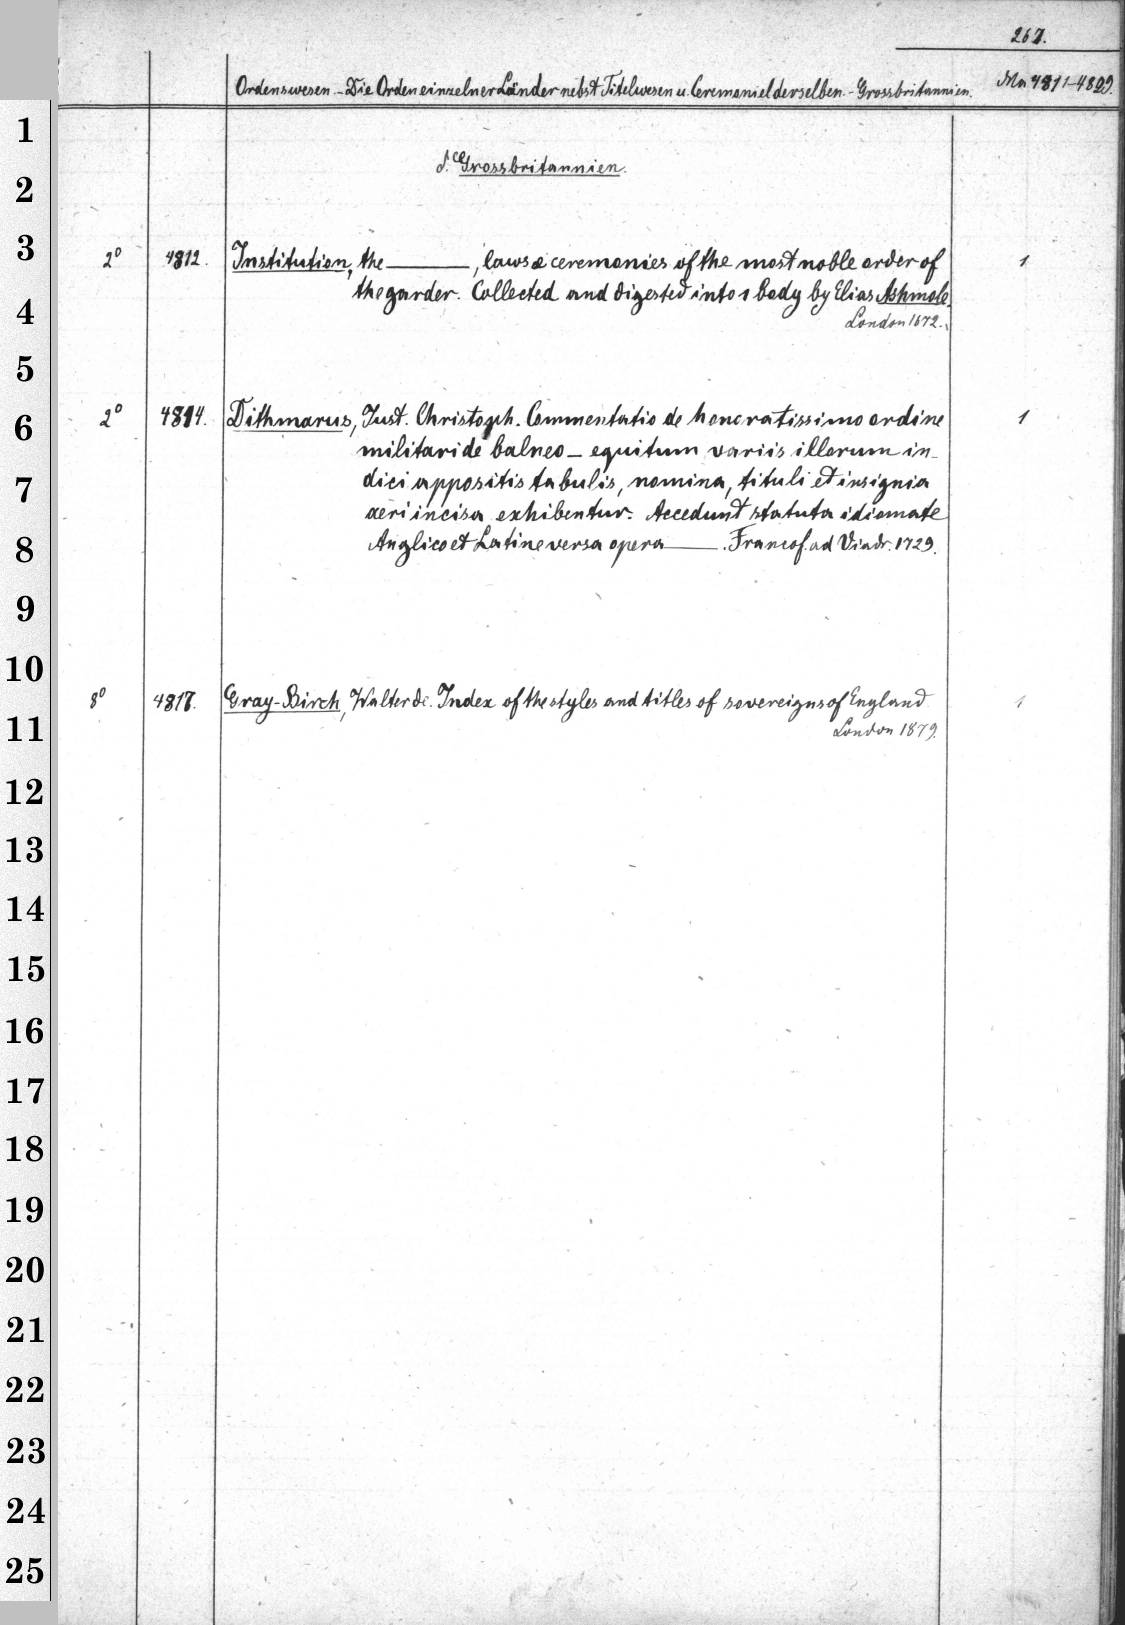 267.
Ordenswesen.-Die Orden einzelner Länder nebst Titelwesen u. Ceremoniel derselben.-Grossbritannien. Ma 4811-4899.
1
d. Grossbritannien.
2
3
2° 4812. Institution, the ———, laws & ceremonies of the most noble order of 1
the garder. Collected and digested into 1 body by Elias Ashmole.
4
London 1672.
5
2° 4814. Dithmarus, Just. Christoph. Commentatio de honoratissimo ordine 1
6
militari de balneo - equitum variis illorum in-
7
dici appositis tabulis, nomina, tituli et insignia
aeri incisa exhibentur. Accedunt statuta idiomate
8
Anglico et Latine versa opera ———. Francof. ad Viadr. 1729.
9
10
8° 4817. Gray-Birch, Walter de. Index of the styles and titles of sovereigns of England 1
11
London 1879.
12
13
14
15
16
17
18
19
20
21
22
23
24
25